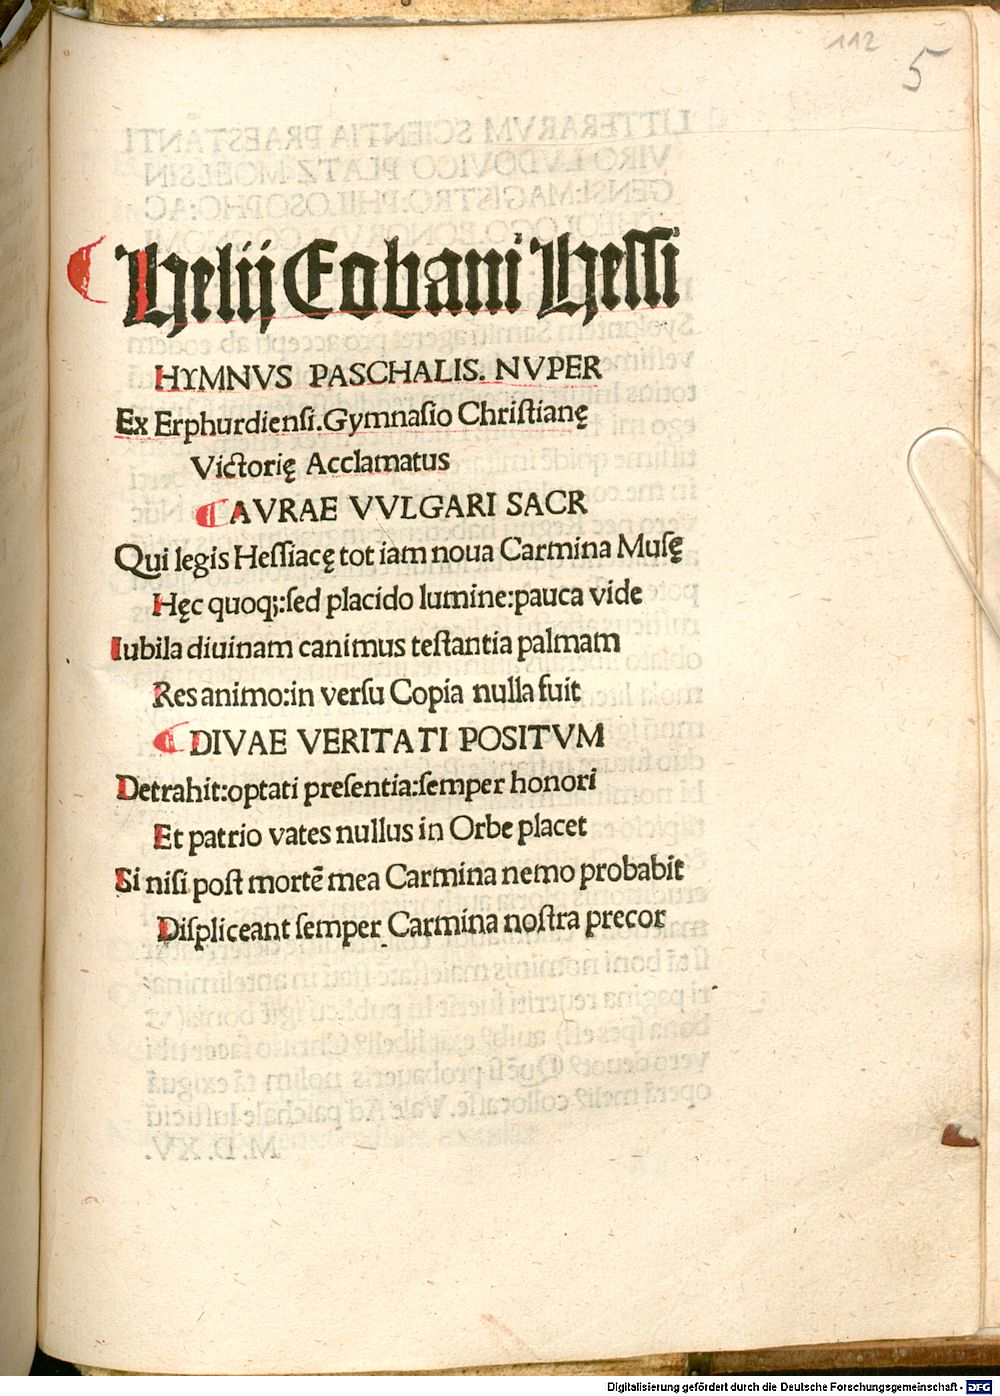 112 5
Helij Eobani Hessi
HYMNVS PASCHALIS. NVPER
Ex Erphurdiensi. Gymnasio Christianę
Victorię Acclamatus
AVRAE VVLGARI SACR
Qui legis Hessiacę tot iam noua Carmina Musę
Hęc quoq;:sed placido lumine:pauca vide
Iubila diuinam canimus testantia palmam
Res animo:in versu Copia nulla fuit
DIVAE VERITATI POSITVM
Detrahit:optati presentia:semper honori
Et patrio vates nullus in Orbe placet
Si nisi post mortē mea Carmina nemo probabit
Displiceant semper Carmina nostra precor
M.D.XV.
Digitalisierung gefördert durch die Deutsche Forschungsgemeinschaft - DFG